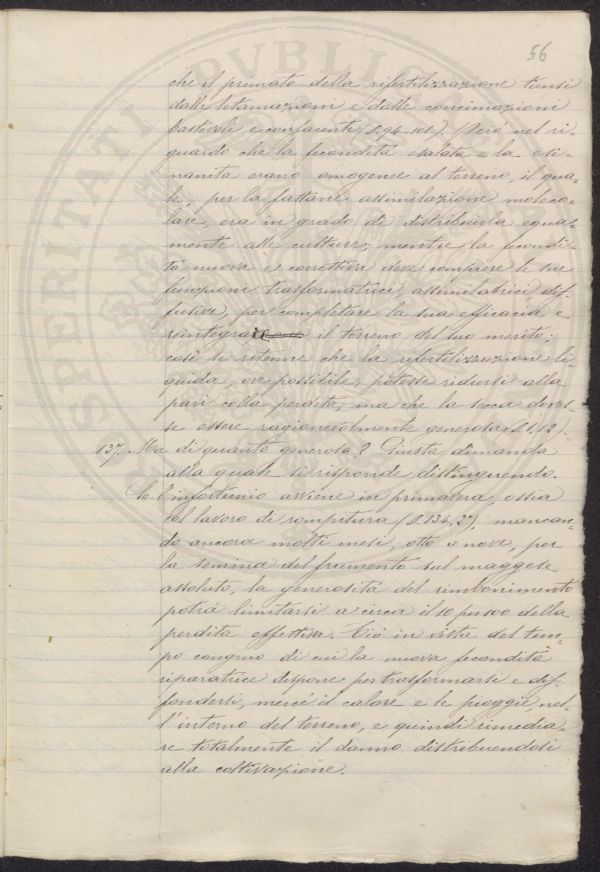 56
che il primato della rifertilizzazione tiensi
dalle letamazioni e dalle concimazioni
bastevoli e confacenti (§. 94-101). Però nel ri-
guardo che la fecondità esalata e la esi-
nanita erano omogenee al terreno, il qua-
le, per la fattane assimilazione moleco-
lare, era in grado di distribuirla equa-
mente alle culture; mentre la fecondi-
tà nuova e correttiva deve compiere le sue
funzioni trasformatrici, assimilatrici dif-
fusive, per completare la sua efficacia e
reintegrare il terreno del suo merito;
così si ritenne che la rifertilizzazione li-
quida, ove possibile, potesse ridursi alla
pari colla perdita, ma che la secca doves-
se essere ragionevolmente generosa (§. 1,12).
137. Ma di quanto generosa? Giusta dimanda
alla quale si risponde distinguendo.
Se l'infortunio avviene in primavera, ossia
col lavoro di rompitura (§. 134, 2°), mancan-
do ancora molti mesi, otto o nove, per
la semina del frumento sul maggese
assoluto, la generosità del rimbonimento
potrà limitarsi a circa il 10 per 100 della
perdita effettiva. Ciò in vista del tem-
po congruo di cui la nuova fecondità
riparatrice dispone per trasformarsi e dif-
fondersi, mercé il calore e le pioggie nel-
l'interno del terreno, e quindi rimedia-
re totalmente il danno distribuendosi
alla coltivazione.
PROSPERITATI PVBLICAE